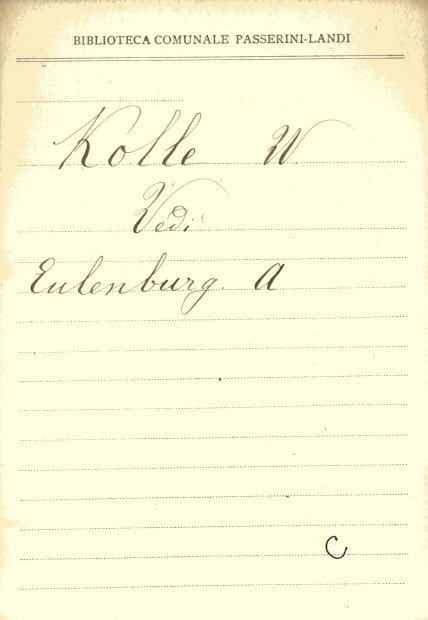 BIBLIOTECA COMUNALE PASSERINI-LANDI
Kolle W.
Vedi
Eulenburg. A
C